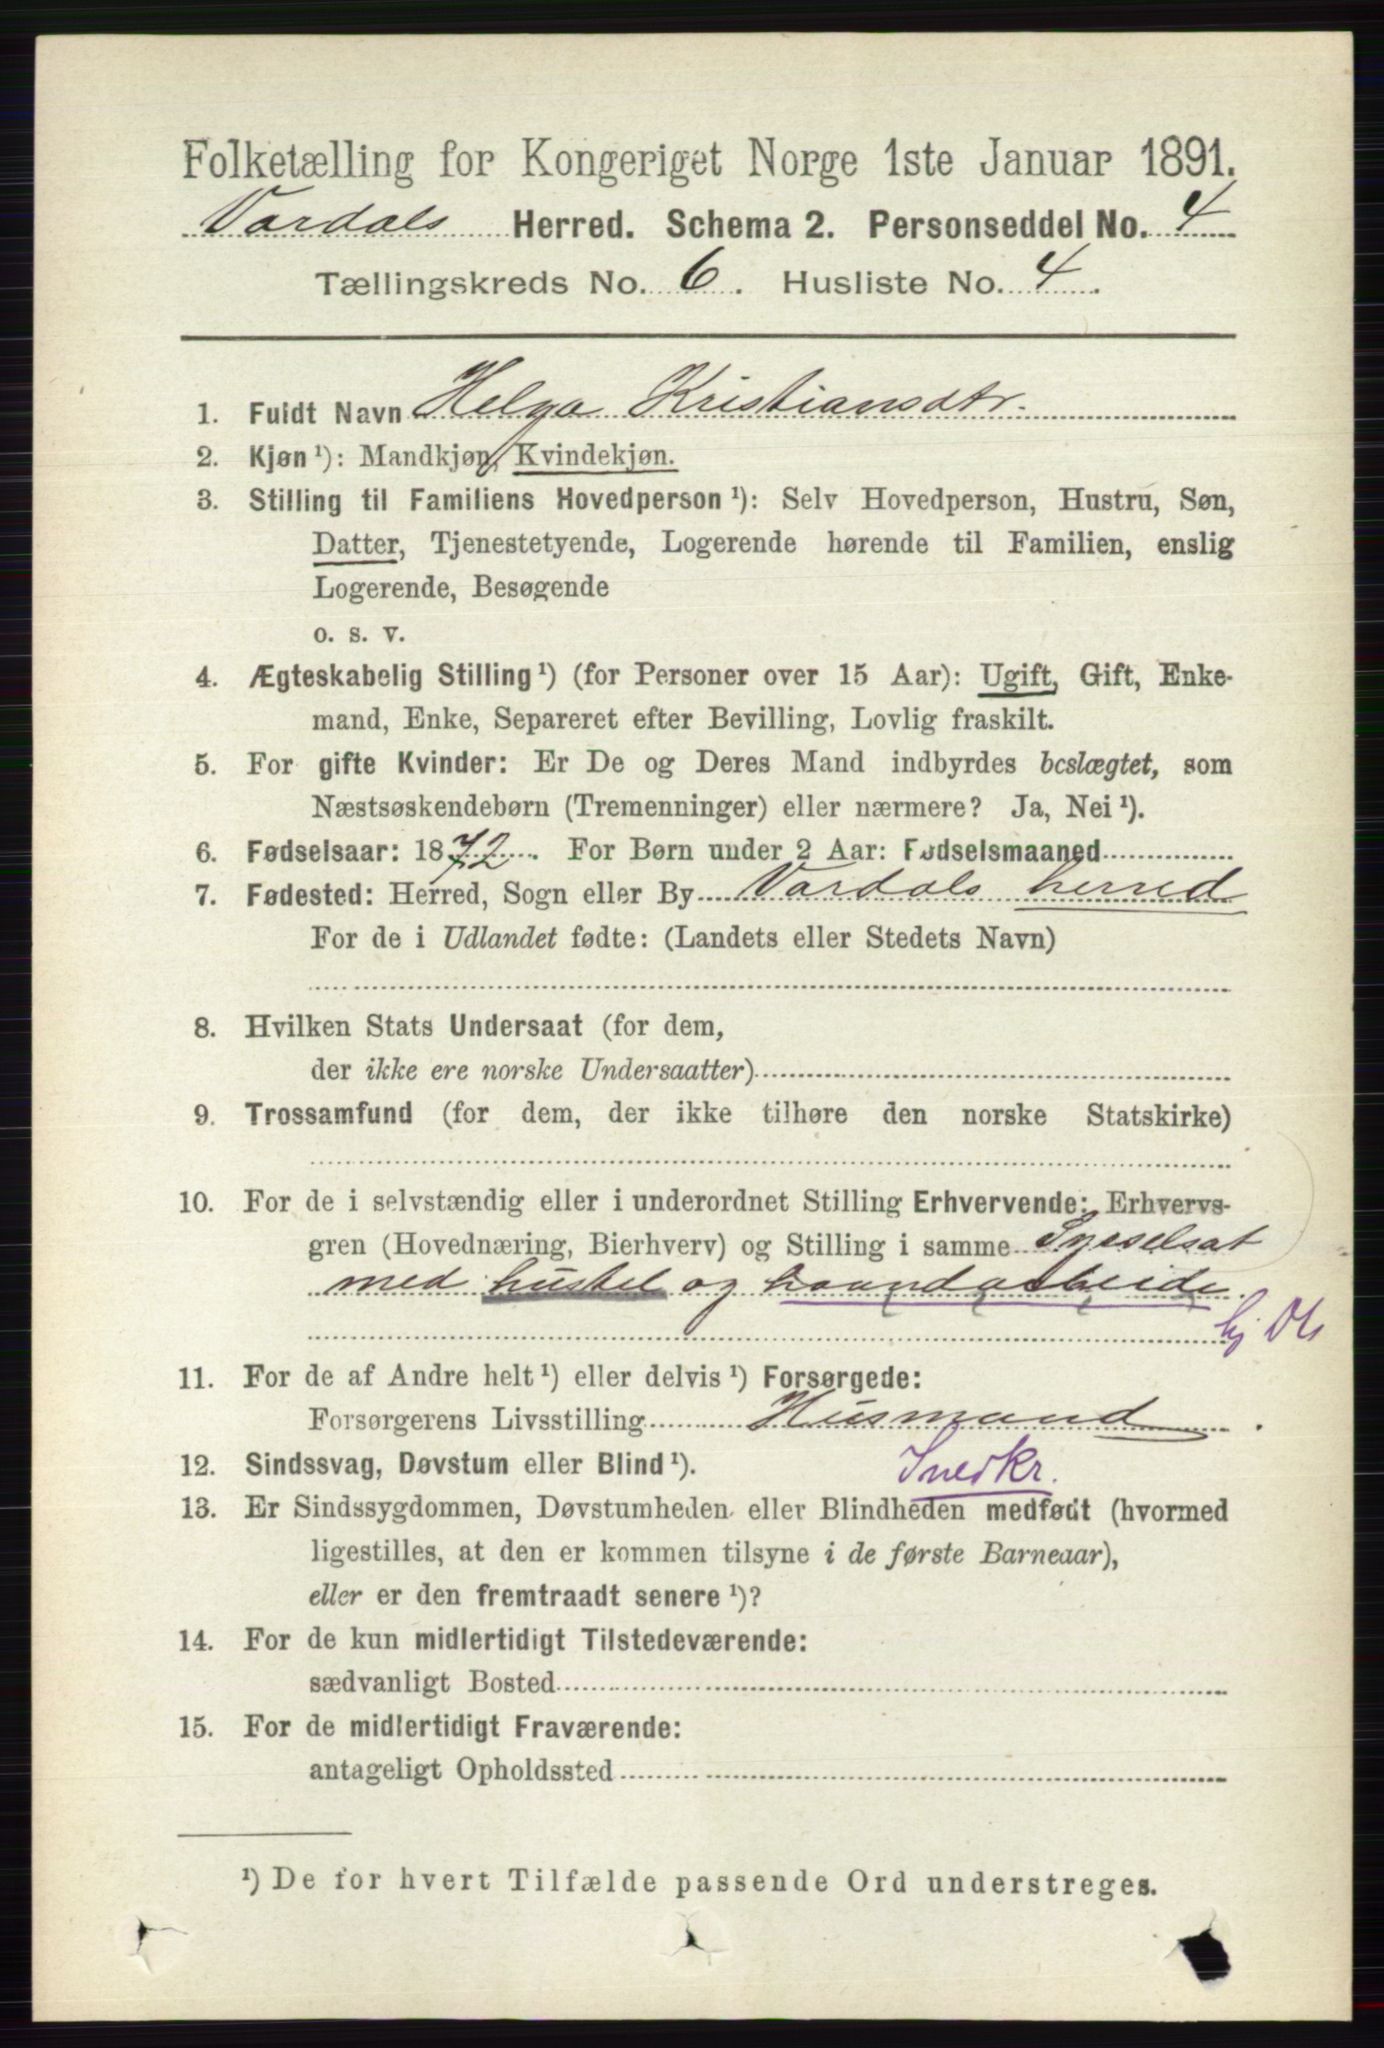 Folketælling for Kongeriget Norge 1ste Januar 1891.
Vardals Herred. Schema 2. Personseddel No. 4
Tællingskreds No. 6. Husliste No. 4.
1. Fuldt Navn Helga Kristiansdtr.
2. Kjøn ¹): Mandkjøn, Kvindekjøn.
3. Stilling til Familiens Hovedperson ¹): Selv Hovedperson, Hustru, Søn,
Datter, Tjenestetyende, Logerende hørende til Familien, enslig
Logerende, Besøgende
o. s. v.
4. Ægteskabelig Stilling ¹) (for Personer over 15 Aar): Ugift, Gift, Enke-
mand, Enke, Separeret efter Bevilling, Lovlig fraskilt.
5. For gifte Kvinder: Er De og Deres Mand indbyrdes beslægtet, som
Næstsøskendebørn (Tremenninger) eller nærmere? Ja, Nei ¹).
6. Fødselsaar: 1872. For Børn under 2 Aar: Fødselsmaaned
7. Fødested: Herred, Sogn eller By Vardals herred
For de i Udlandet fødte: (Landets eller Stedets Navn)
8. Hvilken Stats Undersaat (for dem,
der ikke ere norske Undersaatter)
9. Trossamfund (for dem, der ikke tilhøre den norske Statskirke)
10. For de i selvstændig eller i underordnet Stilling Erhvervende: Erhvervs-
gren (Hovednæring, Bierhverv) og Stilling i samme Syselsat
med hustel og haandarbeide.
hj Dtr
11. For de af Andre helt ¹) eller delvis ¹) Forsørgede:
Forsørgerens Livsstilling Husmand.
12. Sindssvag, Døvstum eller Blind ¹). Snedkr.
13. Er Sindssygdommen, Døvstumheden eller Blindheden medfødt (hvormed
ligestilles, at den er kommen tilsyne i de første Barneaar),
eller er den fremtraadt senere ¹)?
14. For de kun midlertidigt Tilstedeværende:
sædvanligt Bosted
15. For de midlertidigt Fraværende:
antageligt Opholdssted
¹) De for hvert Tilfælde passende Ord understreges.